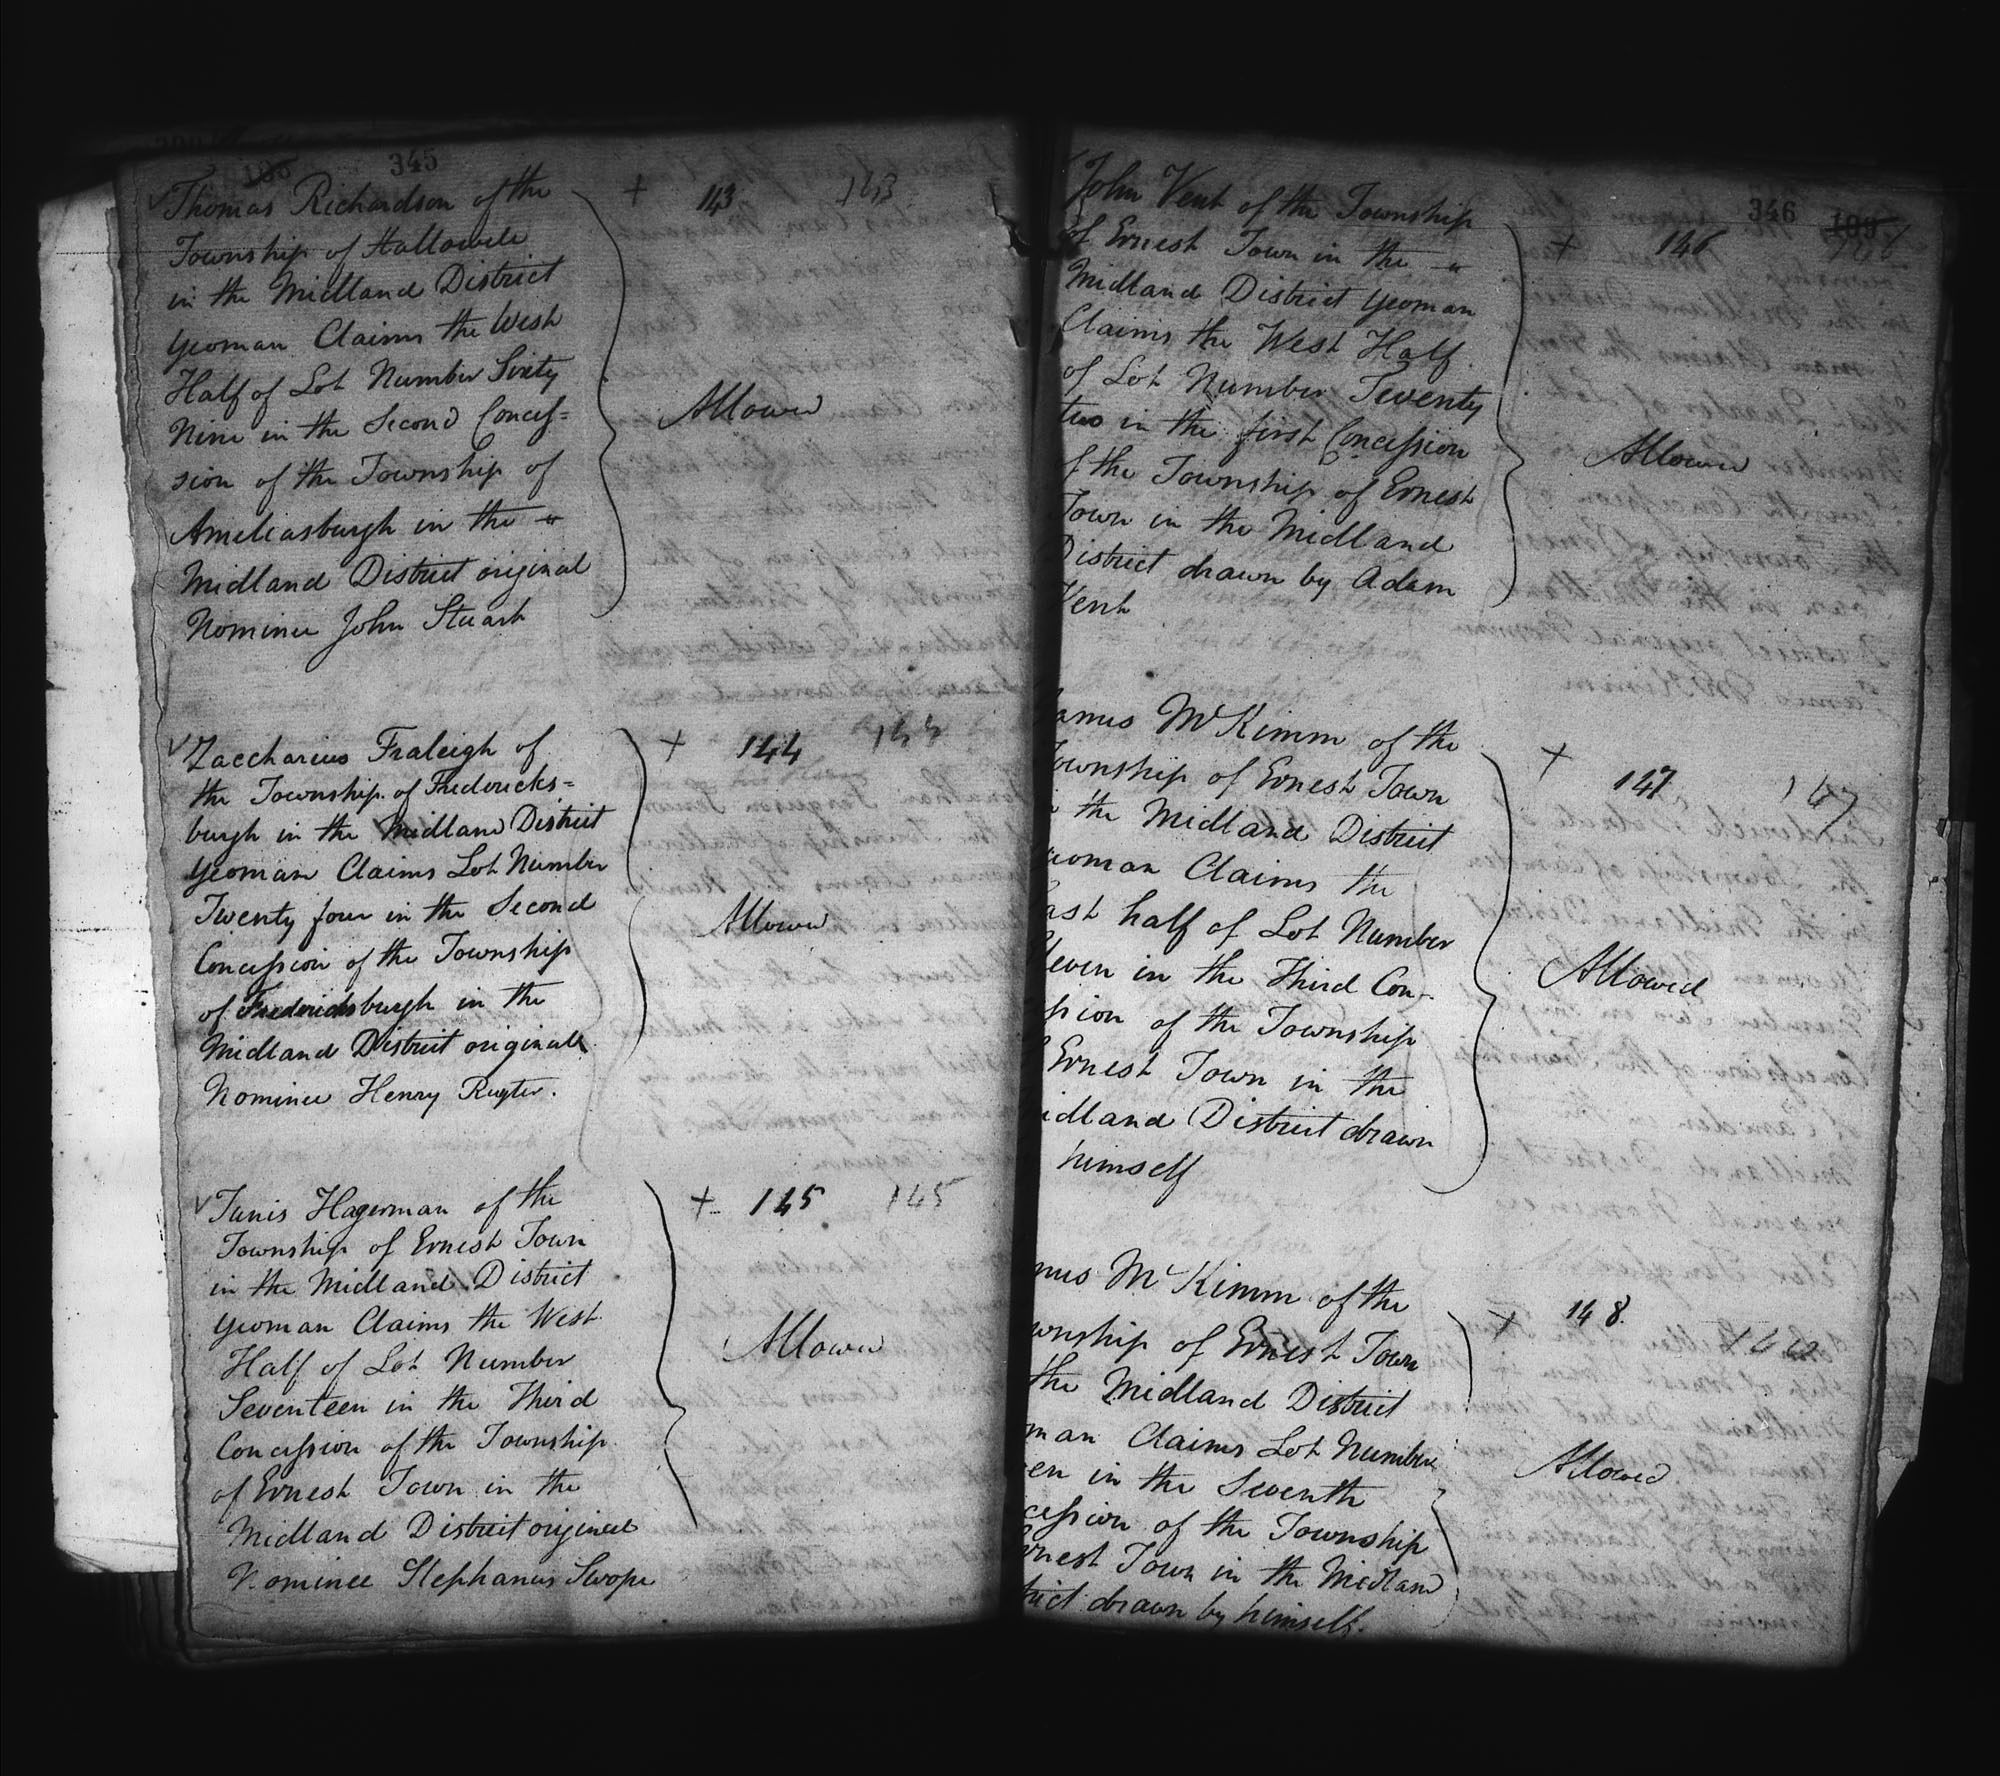 345
Thomas Richardson of the
Township of Hallowell
in the Midland District
Yeoman Claims the West
Half of Lot Number Sixty
Nine in the Second Conces=
sion of the Township of
Ameliasburgh in the
Midland District original
Nominee John Stuart
+ 143 143
Allowed
Zaccharius Fraleigh of
the Township of Fredericks=
burgh in the Midland District
Yeoman Claims Lot Number
Twenty four in the Second
Concession of the Township
of Fredericksburgh in the
Midland District original
Nominee Henry Ruyter.
+ 144 144
Allowed
Tunis Hagerman of the
Township of Ernest Town
in the Midland District
Yeoman Claims the West
Half of Lot Number
Seventeen in the Third
Concession of the Township
of Ernest Town in the
Midland District original
Nominee Stephanus Swope
+ 145 145
Allowed
346
John Vent of the Township
of Ernest Town in the
Midland District Yeoman
Claims the West Half
of Lot Number Twenty
two in the first Concession
of the Township of Ernest
Town in the Midland
District drawn by Adam
Vent
+ 146 146
Allowed
James McKimm of the
ownship of Ernest Town
the Midland District
eoman Claims the
ast half of Lot Number
leven in the Third Con-
ssion of the Township
Ernest Town in the
idland District drawn
himself
+ 147 147
Allowed
mes McKimm of the
wnship of Ernest Town
the Midland District
man Claims Lot Number
en in the Seventh
cession of the Township
rnest Town in the Midland
trict drawn by himself.
+ 148.
Allowed